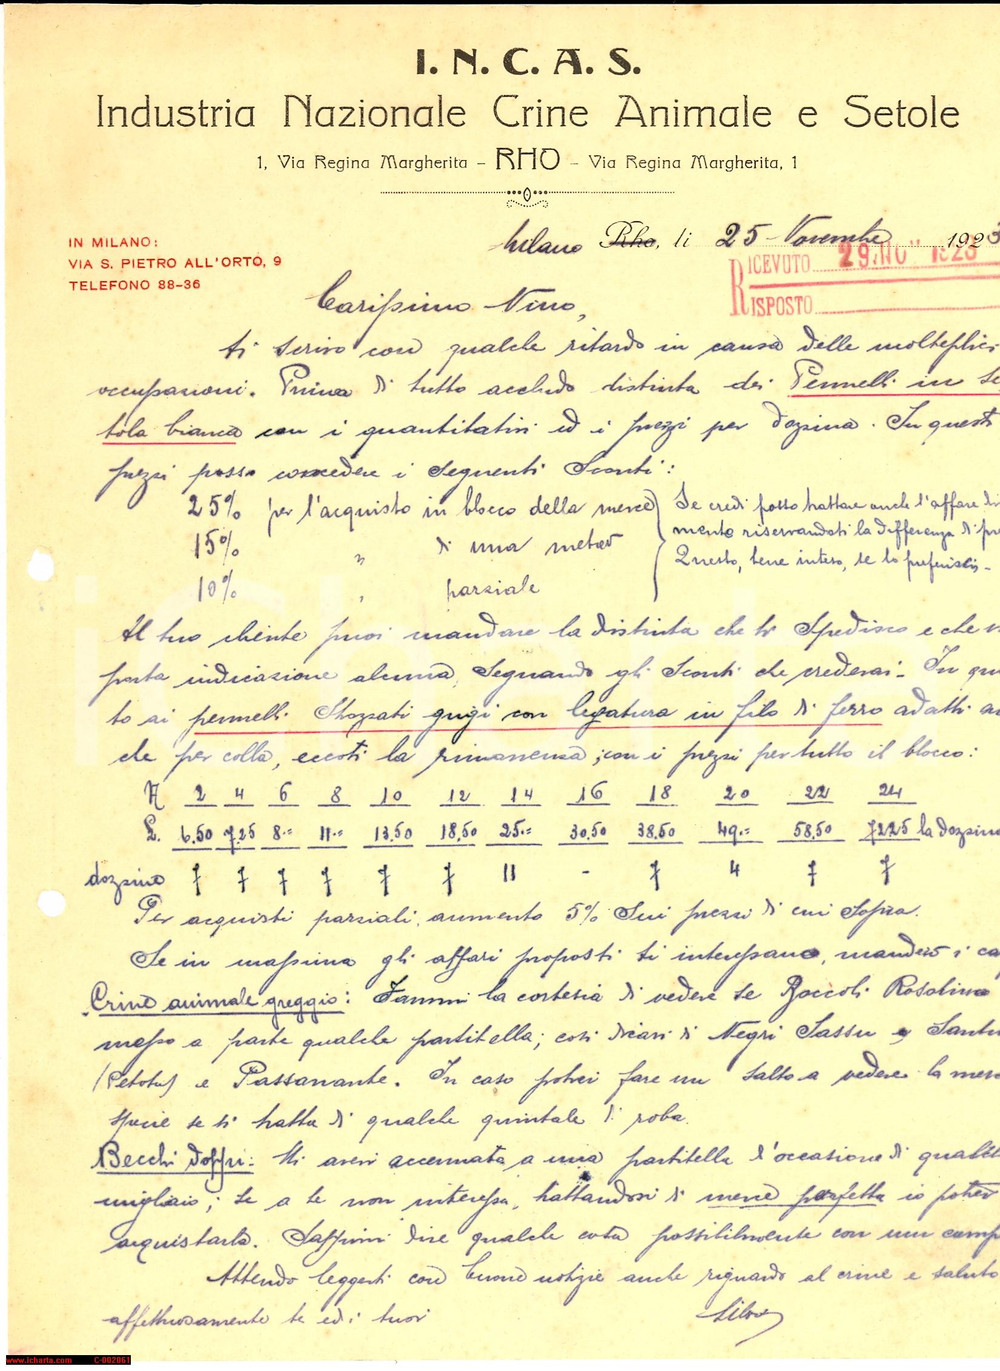 I. N. C. A. S.
Industria Nazionale Crine Animale e Setole
1, Via Regina Margherita – RHO – Via Regina Margherita, 1
IN MILANO:
VIA S. PIETRO ALL'ORTO, 9
TELEFONO 88-36
Milano Rho, li 25 Novembre 1923
RICEVUTO 29 NOV 1923
RISPOSTO
Carissimo Nino,
ti scrivo con qualche ritardo in causa delle molteplici
occupazioni. Prima di tutto accludo distinta dei Pennelli in se
tola bianca con i quantitativi ed i prezzi per dozzina. In questi
prezzi posso concedere i seguenti sconti:
25% per l'acquisto in blocco della merce
15% " di una metà
10% " parziale
Se credi posso trattare anche l'affare
mento riservandoti la differenza di
Questo, bene inteso, se lo preferisci -
Al tuo cliente puoi mandare la distinta che ti spedisco e che
porta indicazione alcuna, segnando gli sconti che crederai - In
to ai pennelli Strozzati grigi con legatura in filo di ferro adatti
che per colla, eccoti la rimanenza; con i prezzi per tutto il blocco:
N 2 4 6 8 10 12 14 16 18 20 22 24
L. 6,50 7,25 8.= 11.= 13,50 18,50 25.= 30,50 38,50 49.= 58,50 72,25 la dozzina
dozzine 7 7 7 7 7 7 11 - 7 4 7 7
Per acquisti parziali, aumento 5% sui prezzi di cui sopra.
Se in massima gli affari proposti ti interessano, manderò i
Crine animale greggio: Fammi la cortesia di vedere se Boccoli Rosolino
messo a parte qualche partitella; così dicasi di Negri Sassu e
e Passanante. In caso potrei fare un salto a vedere la
specie se si tratta di qualche quintale di roba.
Becchi doppi: Mi avevi accennata a una partitella d'occasione di qualche
migliaio; se a te non interessa, trattandosi di merce perfetta io potrei
acquistarla. Sappimi dire qualche cosa possibilmente con un
Attendo leggerti con buone notizie anche riguardo al crine e saluto
affettuosamente te ed i tuoi
www.icharta.com C-002061